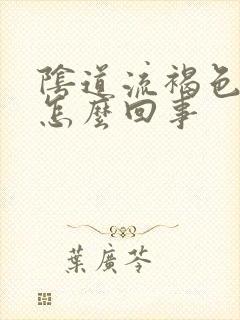 陰道流褐色
怎麼回事
葉廣芩